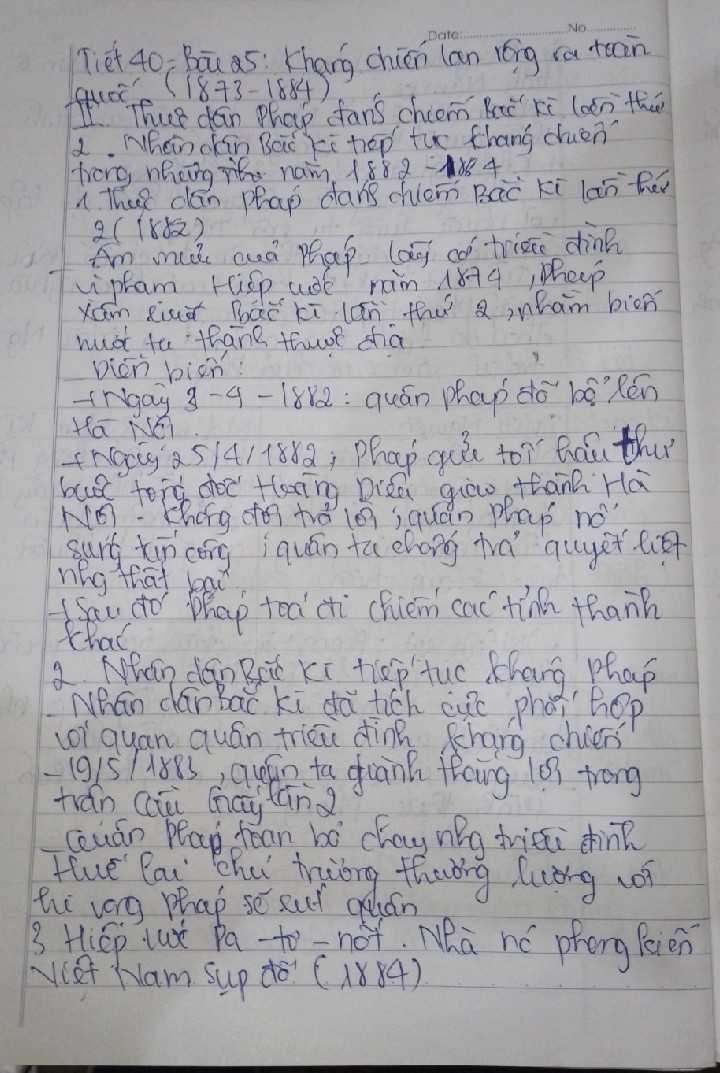 Date: No
Tiết 40 - Bài 25: Kháng chiến lan rộng ra toàn
quốc (1873-1884)
II. Thực dân Pháp đánh chiếm Bắc Kì lần thứ
2. Nhân dân Bắc Kì tiếp tục kháng chiến
trong những năm 1882-1884
1. Thực dân Pháp đánh chiếm Bắc Kì lần thứ
2 (1882)
- Âm mưu của Pháp lấy cớ triều đình
vi phạm Hiệp ước năm 1874, Pháp
xâm lược Bắc Kì lần thứ 2, nhằm biến
nước ta thành thuộc địa
Diễn biến:
+ Ngày 3-4-1882: quân pháp đổ bộ lên
Hà Nội.
+ Ngày 25/4/1882, Pháp gửi tối hậu thư
buộc tổng đốc Hoàng Diệu giao thành Hà
Nội. Không đợi trả lời, quân Pháp nổ
súng tấn công, quân ta chống trả quyết liệt
nhg thất bại
+ Sau đó Pháp toả đi chiếm các tỉnh thành
khác
2. Nhân dân Bắc Kì tiếp tục kháng Pháp
- Nhân dân Bắc Kì đã tích cực phối hợp
với quan quân triều đình kháng chiến
- 19/5/1883, quân ta giành thắng lợi trong
trận Cầu Giấy lần 2
- Quân Pháp toan bỏ chạy nhg triều đình
Huế lại chủ trương thương lượng với
hi vọng Pháp sẽ rút quân
3 Hiệp ước Pa-tơ-nốt. Nhà nc phong kiến
Việt Nam sụp đổ (1884)